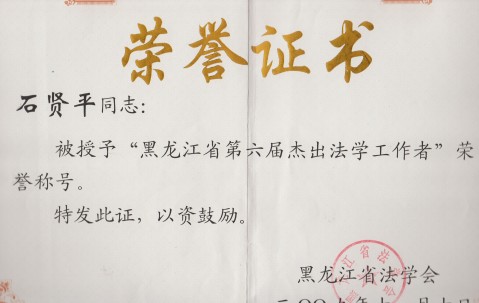 荣誉证书
石贤平同志：
被授予“黑龙江省第六届杰出法学工作者”荣
誉称号。
特发此证，以资鼓励。
黑龙江省法学会